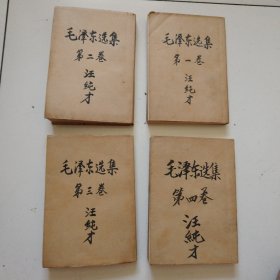 毛泽东选集
第二卷
汪纯才
毛泽东选集
第一卷
汪纯才
毛泽东选集
第三卷
汪纯才
毛泽东选集
第四卷
汪纯才